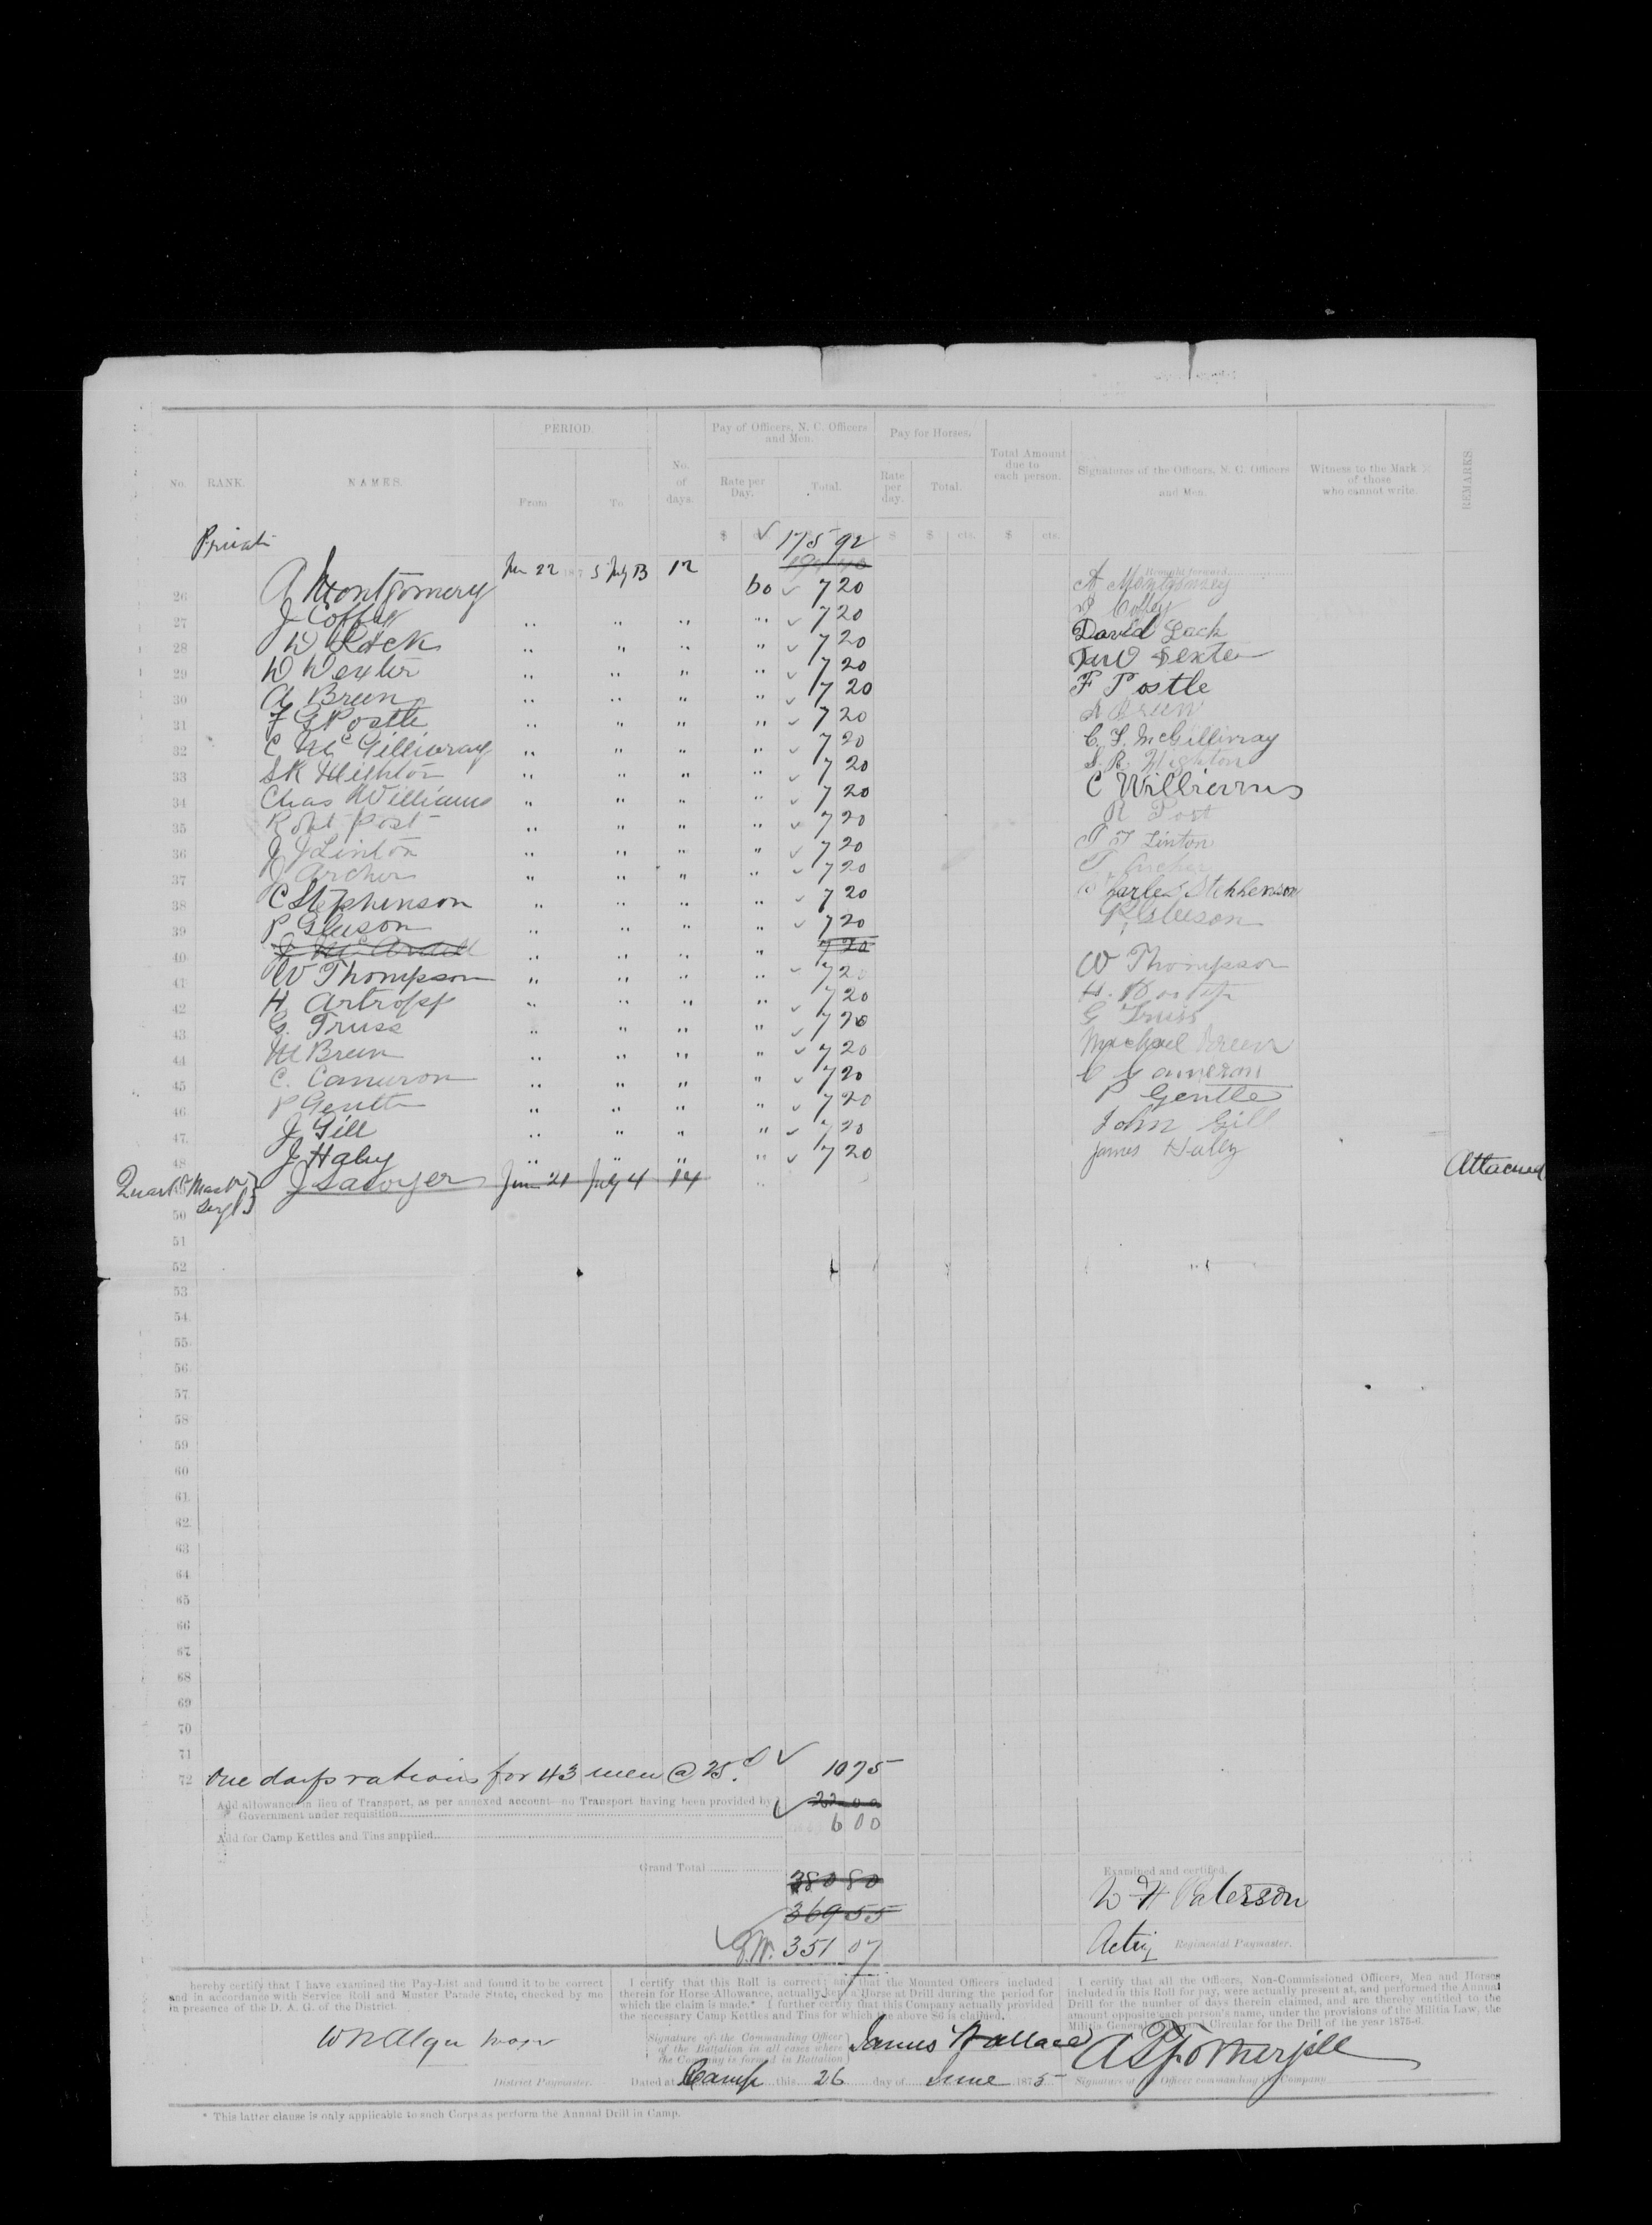 No. RANK. NAMES. PERIOD. From To No. of days. Pay of Officers, N. C. Officers and Men. Rate per Day. Total. Pay for Horses. Rate per day. Total. Total Amount due to each person. Signatures of the Officers, N. C. Officers and Men. Witness to the Mark × of those who cannot write. REMARKS.
$ ✓ 175 92 $ $ cts. $ cts.
Private
Brought forward
26 A Montgomery Jun 22 187 5 July 3 12 60 ✓ 7 20 A Montgomery
27 J Coffey .. " .. .. ✓ 7 20 Coffey
28 D Lack .. " .. " ✓ 7 20 David Lack
29 D Dexter .. .. " .. ✓ 7 20 Dexter
30 A Breen .. .. " " ✓ 7 20 F Postle
31 F G Postle .. " " " ✓ 7 20 A Breen
32 C McGillivray .. " " " ✓ 7 20 C. F. McGillivray
33 S R Wighton .. " " " ✓ 7 20 S. R. Wighton
34 Chas Williams " " " .. ✓ 7 20 C Williams
35 Robt Post .. " " " ✓ 7 20 R Post
36 J J Linton .. .. " " ✓ 7 20 J J Linton
37 J Archer .. .. " .. ✓ 7 20 Archer
38 C Stephenson " .. .. " ✓ 7 20 Charles Stephenson
39 P Gleeson .. " " " ✓ 7 20 P, Gleeson
40 J .. .. .. " 7 20
41 W Thompson " " .. .. ✓ 7 20 W Thompson
42 H Artropp .. .. " " ✓ 7 20 H.
43 G. Truss .. " " " ✓ 7 20 G Truss
44 M Breen .. .. " " ✓ 7 20 Michael Breen
45 C. Cameron .. " " " ✓ 7 20 C Cameron
46 P Gentle " .. " " ✓ 7 20 P Gentle
47 J Gill .. " " " ✓ 7 20 John Gill
48 J Haley .. " " " ✓ 7 20 James Haley
Quart Mast Sergt J Sawyer Jun 21 July 4 14 .. Attached
50
51
52
53
54
55
56
57
58
59
60
61
62
63
64
65
66
67
68
69
70
71
72 One days rations for 43 men @ 25. ✓ 10 75
Add allowance in lieu of Transport, as per annexed account—no Transport having been provided by ✓ 22 00
Government under requisition
6 00
Add for Camp Kettles and Tins supplied
Grand Total 380 80
369 55
351 07
Examined and certified,
W H Paterson
Acting Regimental Paymaster.
hereby certify that I have examined the Pay-List and found it to be correct
and in accordance with Service Roll and Muster Parade State, checked by me
in presence of the D. A. G. of the District.
District Paymaster.
I certify that this Roll is correct; and that the Mounted Officers included
therein for Horse Allowance, actually kept a Horse at Drill during the period for
which the claim is made.* I further certify that this Company actually provided
the necessary Camp Kettles and Tins for which the above $6 is claimed.
Signature of the Commanding Officer
of the Battalion in all cases where
the Company is formed in Battalion
James Wallace
Dated at Camp this 26 day of June 187 5
I certify that all the Officers, Non-Commissioned Officers, Men and Horses
included in this Roll for pay, were actually present at, and performed the Annual
Drill for the number of days therein claimed, and are thereby entitled to the
amount opposite each person's name, under the provisions of the Militia Law, the
Militia General Circular for the Drill of the year 1875-6.
Signature of Officer commanding the Company
* This latter clause is only applicable to such Corps as perform the Annual Drill in Camp.